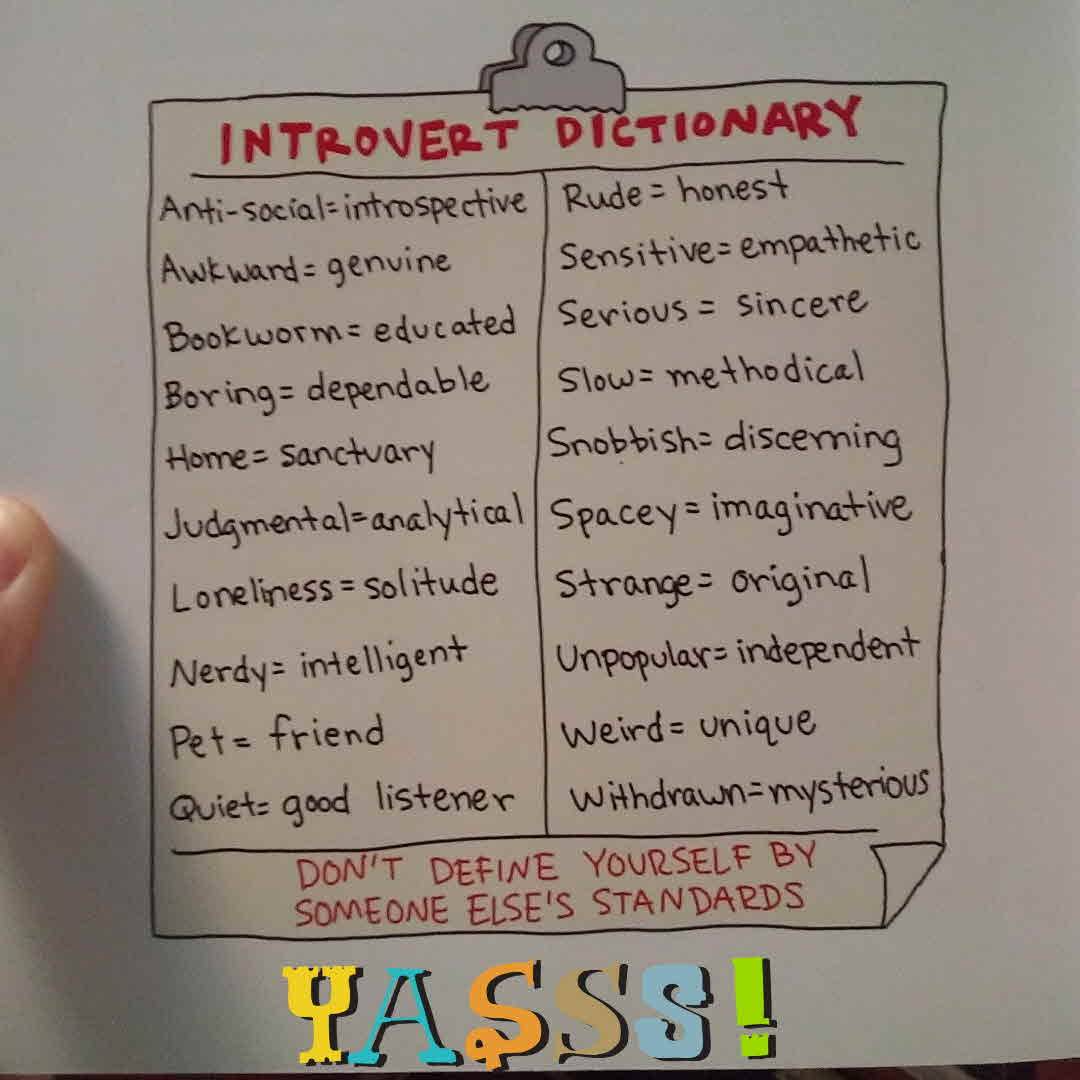 INTROVERT DICTIONARY
Anti-social=introspective
Awkward= genuine
Bookworm= educated
Boring= dependable
Home= sanctuary
Judgmental=analytical
Loneliness = solitude
Nerdy= intelligent
Pet= friend
Quiet= good listener
Rude = honest
Sensitive= empathetic
Serious = sincere
Slow= methodical
Snobbish= discerning
Spacey = imaginative
Strange= original
Unpopular= independent
Weird= unique
Withdrawn=mysterious
DON'T DEFINE YOURSELF BY
SOMEONE ELSE'S STANDARDS
YASSS!